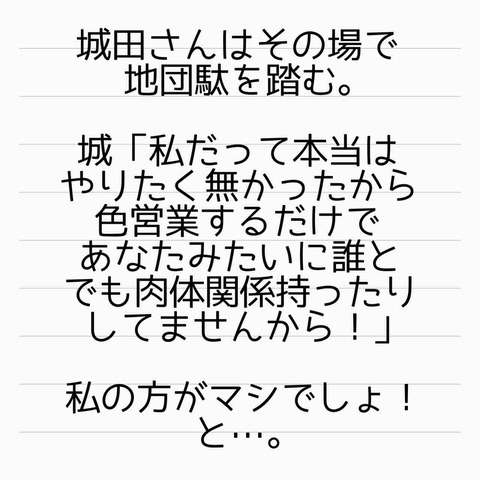 城田さんはその場で
地団駄を踏む。
城「私だって本当は
やりたく無かったから
色営業するだけで
あなたみたいに誰と
でも肉体関係持ったり
してませんから！」
私の方がマシでしょ！
と…。